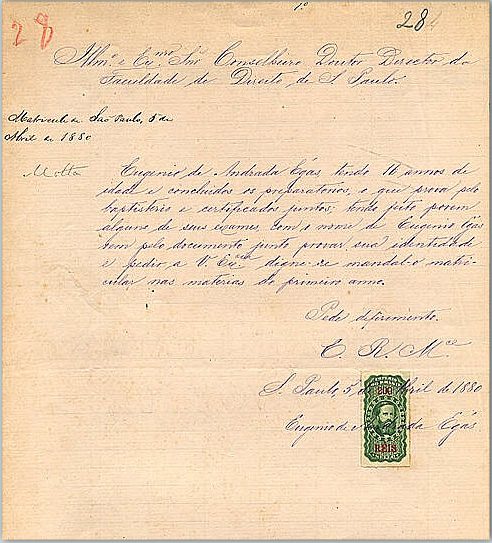 1º
28
28
Illmo. e Exmo. Snr. Conselheiro Doutor Director da
Faculdade de Direito de S. Paulo.
Matricule-se. São Paulo, 5 de
Abril de 1880
Motta
Eugenio de Andrada Egas, tendo 16 annos de
idade e concluidos os preparatorios, o que prova pelo
baptisterio e certificados juntos; tendo feito porem
alguns de seus exames, com o nome de Eugenio Egas
vem pelo documento junto provar sua identidade
e pedir a V. Exª. digne-se mandal-o matri-
cular nas materias do primeiro anno.
Pede deferimento.
E. R. Mce
S. Paulo, 5 de Abril de 1880
200
REIS
Eugenio de da Egas